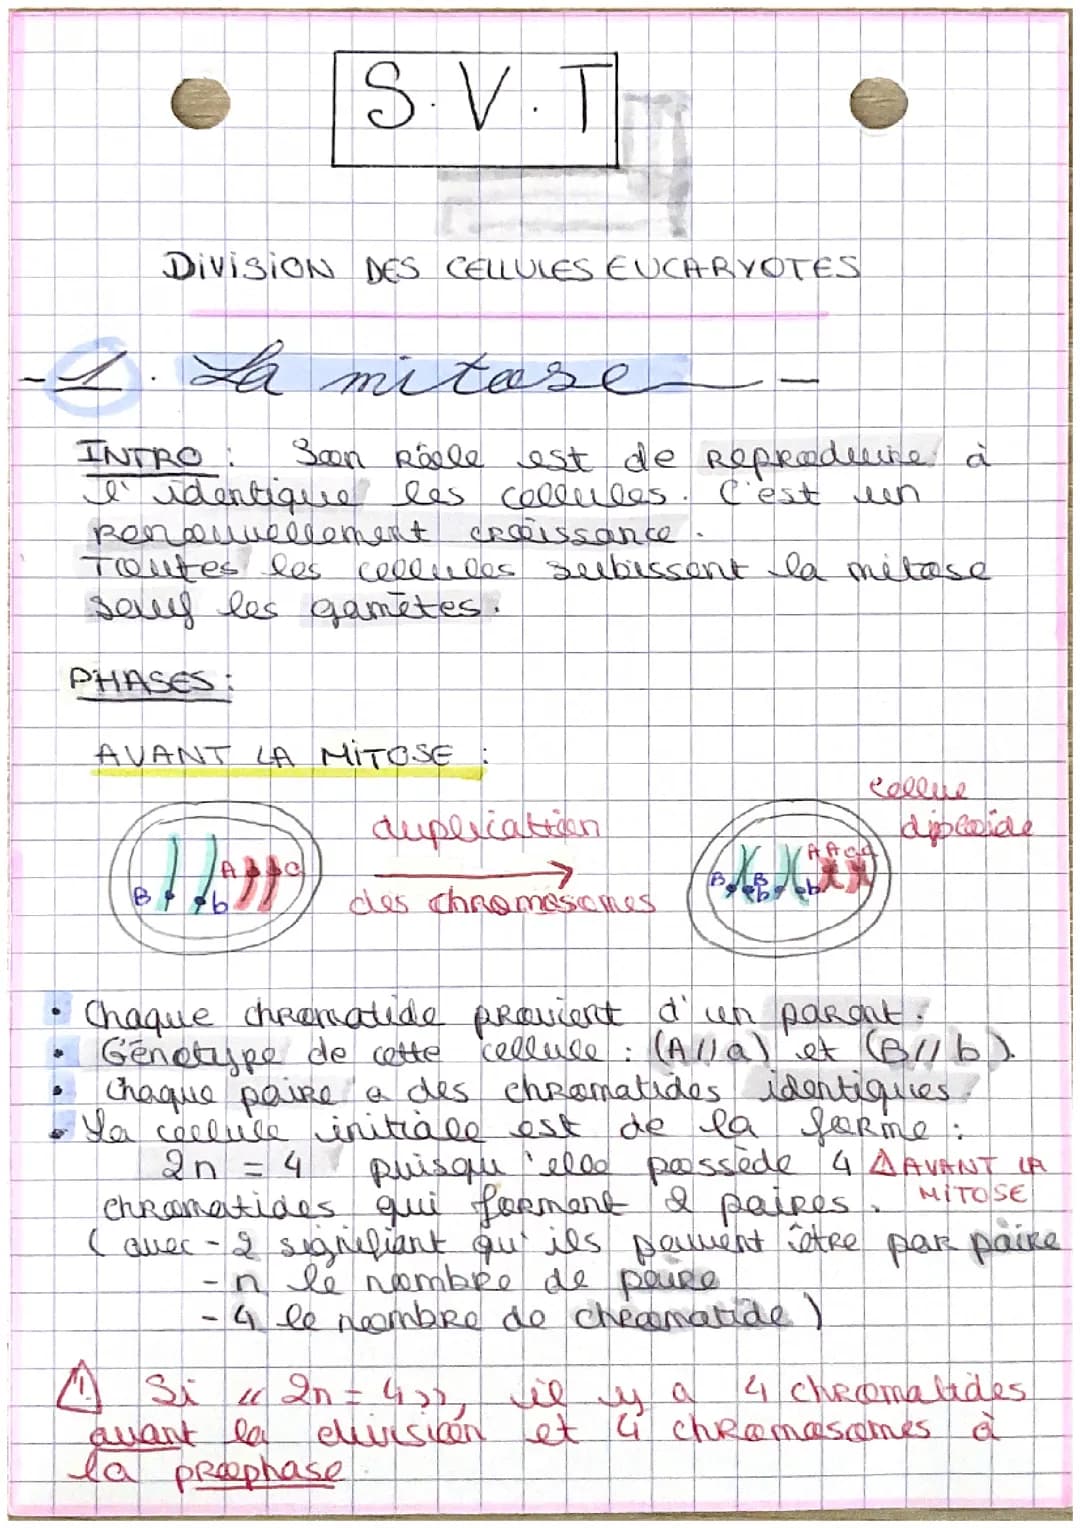 S.V.T
DIVISION DES CELLULES EUCARYOTES
-1. La mitose -
INTRO : Son Rôle est de Reproduire à
l'identique les cellules. C'est un
Renouvellement croissance.
Toutes les cellules subissent la mitose
sauf les gamètes.
PHASES :
AVANT LA MITOSE :
duplication
des chromosomes
cellule
diploïde
B b A a
B B b b A A a a
• Chaque chromatide provient d'un parent.
• Génotype de cette cellule : (A//a) et (B//b).
• Chaque paire a des chromatides identiques.
• La cellule initiale est de la forme :
2n = 4 puisqu'elle possède 4 ⚠ AVANT LA MITOSE
chromatides qui forment 2 paires.
(avec - 2 signifiant qu'ils peuvent être par paire
- n le nombre de paire
- 4 le nombre de chromatide)
⚠ Si « 2n = 4 », il y a 4 chromatides
avant la division et 4 chromosomes à
la prophase.